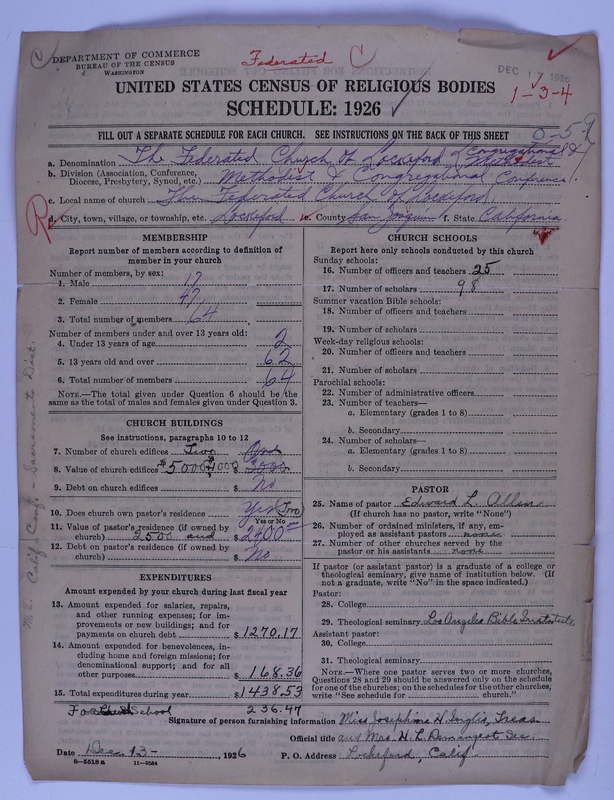 DEPARTMENT OF COMMERCE
BUREAU OF THE CENSUS
WASHINGTON
Federated C
DEC 17 1926
1-3-4
UNITED STATES CENSUS OF RELIGIOUS BODIES
SCHEDULE: 1926
FILL OUT A SEPARATE SCHEDULE FOR EACH CHURCH. SEE INSTRUCTIONS ON THE BACK OF THIS SHEET
0-5-9
a. Denomination The Federated Church of Lockeford (Congregational & Methodist)
b. Division (Association, Conference, Diocese, Presbytery, Synod, etc.) Methodist & Congregational Conference
c. Local name of church The Federated Church of Lockeford
d. City, town, village, or township, etc. Lockeford e. County San Joaquin f. State California
MEMBERSHIP
Report number of members according to definition of member in your church
Number of members, by sex:
1. Male 17
2. Female 47
3. Total number of members 64
Number of members under and over 13 years old:
4. Under 13 years of age 2
5. 13 years old and over 62
6. Total number of members 64
NOTE.—The total given under Question 6 should be the same as the total of males and females given under Question 3.
CHURCH BUILDINGS
See instructions, paragraphs 10 to 12
7. Number of church edifices Two One
8. Value of church edifices $5000 $4000 $ 3000
9. Debt on church edifices $ No
10. Does church own pastor's residence Yes (Two)
Yes or No
11. Value of pastor's residence (if owned by church) 2500 and $ 2400
12. Debt on pastor's residence (if owned by church) $ No
EXPENDITURES
Amount expended by your church during last fiscal year
13. Amount expended for salaries, repairs, and other running expenses; for improvements or new buildings; and for payments on church debt $ 1270.17
14. Amount expended for benevolences, including home and foreign missions; for denominational support; and for all other purposes $ 168.36
15. Total expenditures during year $ 1438.53
For School 236.47
CHURCH SCHOOLS
Report here only schools conducted by this church
Sunday schools:
16. Number of officers and teachers 25
17. Number of scholars 98
Summer vacation Bible schools:
18. Number of officers and teachers
19. Number of scholars
Week-day religious schools:
20. Number of officers and teachers
21. Number of scholars
Parochial schools:
22. Number of administrative officers
23. Number of teachers—
a. Elementary (grades 1 to 8)
b. Secondary
24. Number of scholars—
a. Elementary (grades 1 to 8)
b. Secondary
PASTOR
25. Name of pastor Edward L. Allen
(If church has no pastor, write "None")
26. Number of ordained ministers, if any, employed as assistant pastors none
27. Number of other churches served by the pastor or his assistants none
If pastor (or assistant pastor) is a graduate of a college or theological seminary, give name of institution below. (If not a graduate, write "No" in the space indicated.)
Pastor:
28. College
29. Theological seminary Los Angeles Bible Institute
Assistant pastor:
30. College
31. Theological seminary
NOTE.—Where one pastor serves two or more churches, Questions 28 and 29 should be answered only on the schedule for one of the churches; on the schedules for the other churches, write "See schedule for church."
Signature of person furnishing information Miss Josephine H. Inglis, Treas
Official title and Mrs. H. L. Demangeot Sec.
Date Dec. 13-, 1926 P. O. Address Lockeford, Calif
8-5518 a 11-9034
M. E. Calif. Conf. - Sacramento Dist.